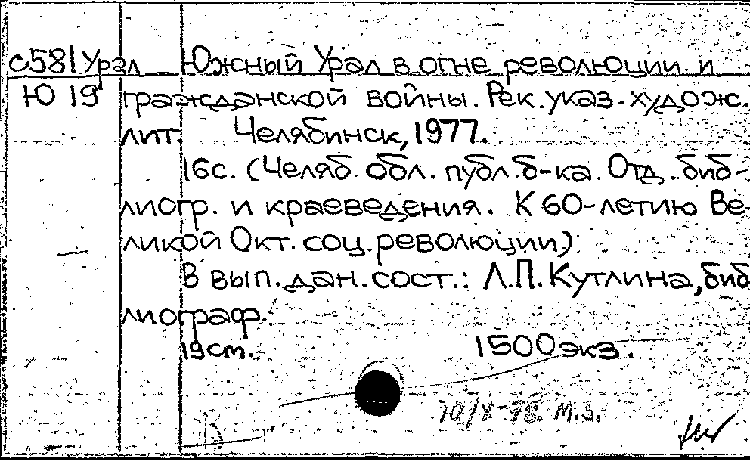 с581Урал Южный Урал в огне революции и
Ю 19 гражданской войны. Рек. указ. худож.
лит. Челябинск, 1977.
16с. (Челяб. обл. публ. б-ка. Отд. биб-
лиогр. и краеведения. К 60-летию Ве-
ликой Окт. соц. революции)
В вып. дан. сост.: Л.П. Кутлина, биб
лиограф.
19см. 1500экз.
М.З.